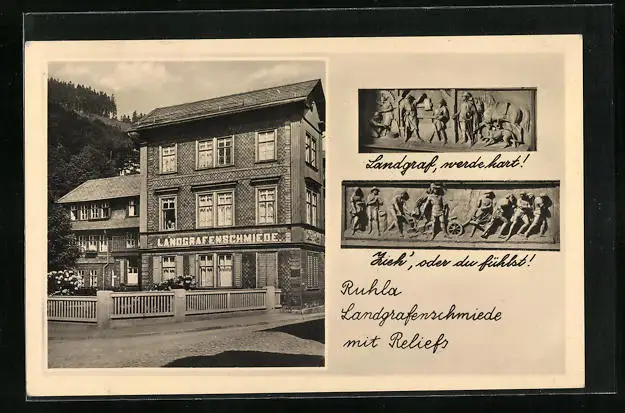 LANDGRAFENSCHMIEDE
Landgraf, werde hart!
Zieh', oder du fühlst!
Ruhla
Landgrafenschmiede
mit Reliefs